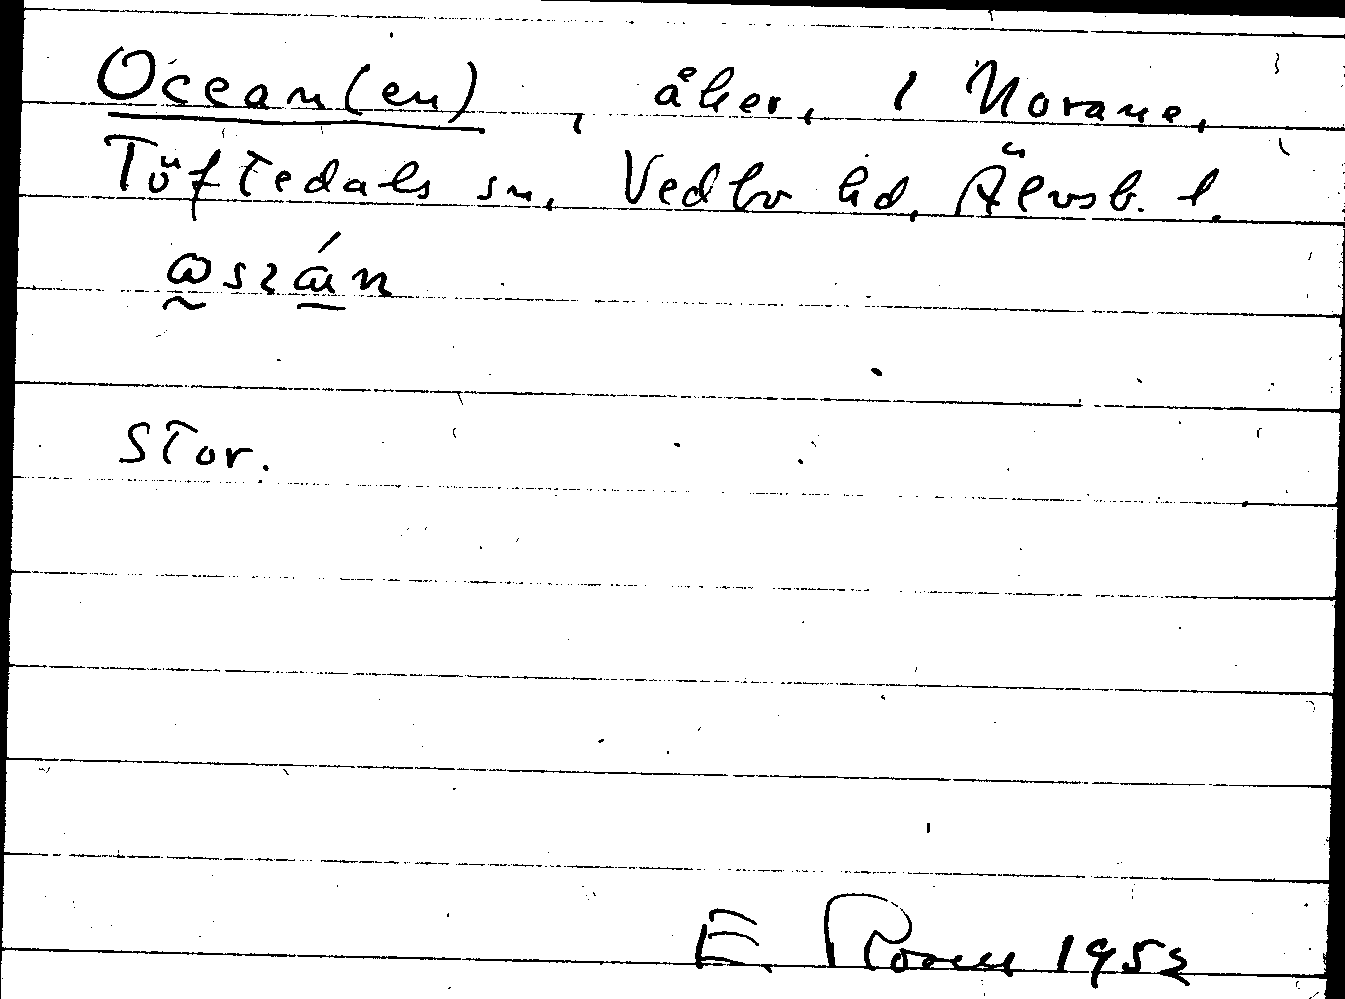 Ocean(en), åker, 1 Norane,
Töftedals sn, Vedbo hd, Älvsb. l.
Stor.
E. 1952